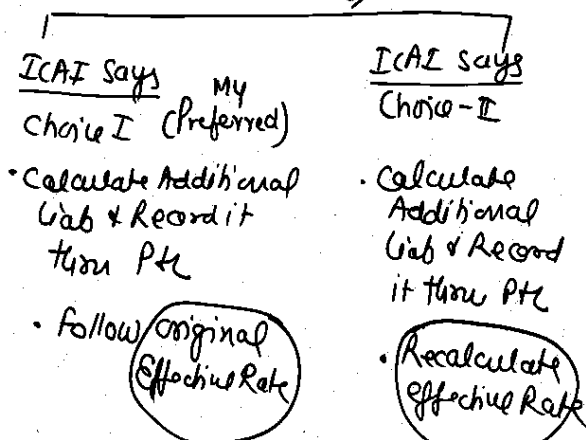 ICAI Says
My
Choice I (Preferred)
• Calculate Additional
Liab & Record it
thru P&L
• Follow original
Effective Rate
ICAI Says
Choice-II
• Calculate
Additional
Liab & Record
it thru P&L
• Recalculate
effective Rate